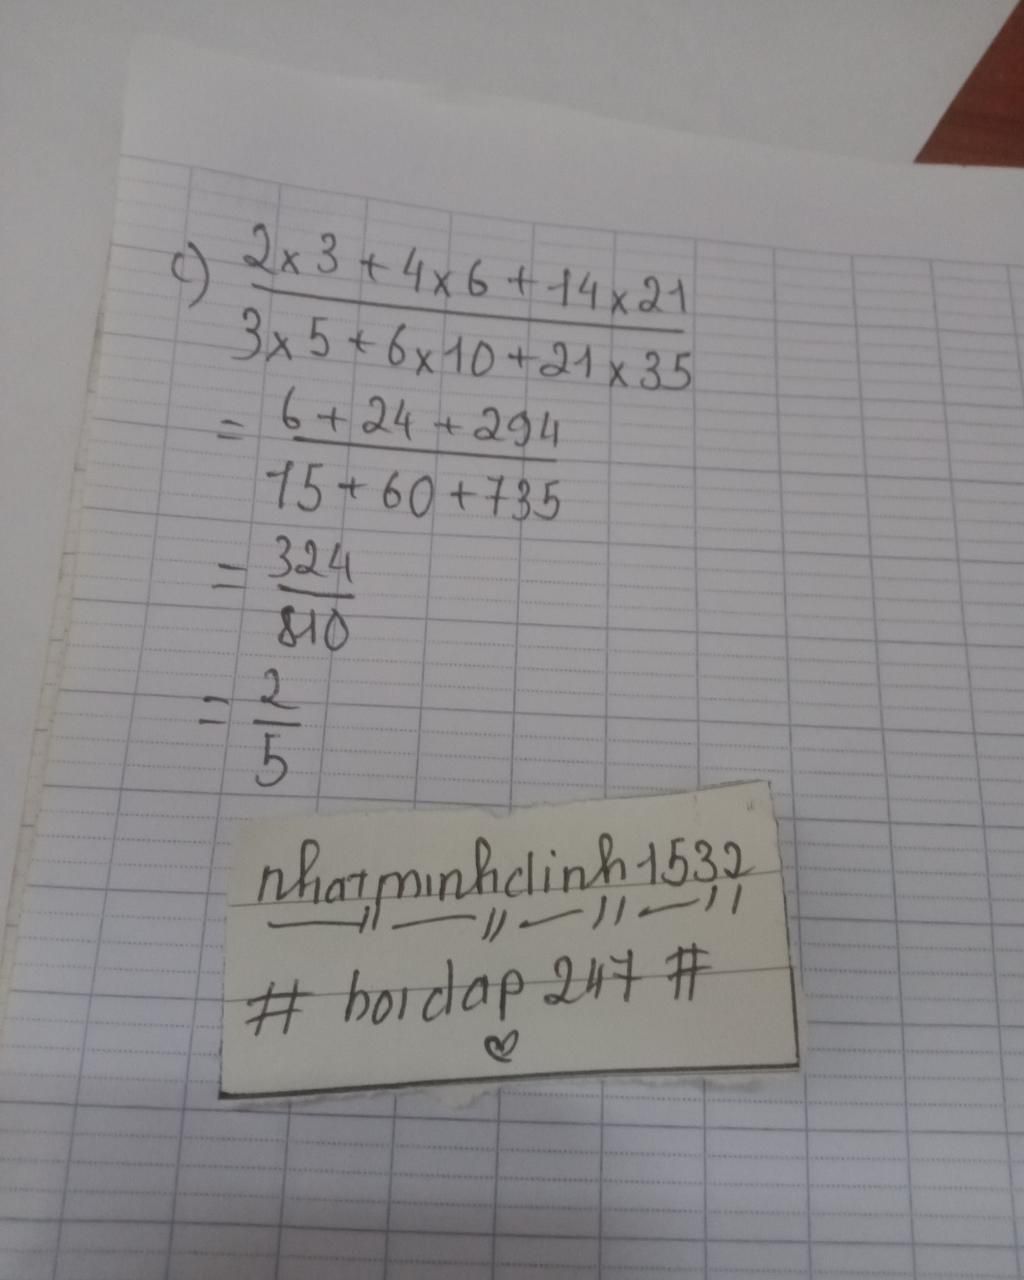 c) 2x3+4x6+14x21
3x5+6x10+21x35
= 6+24+294
15+60+735
= 324
810
= 2
5
nhatminhdinh1532
# hoidap247 #